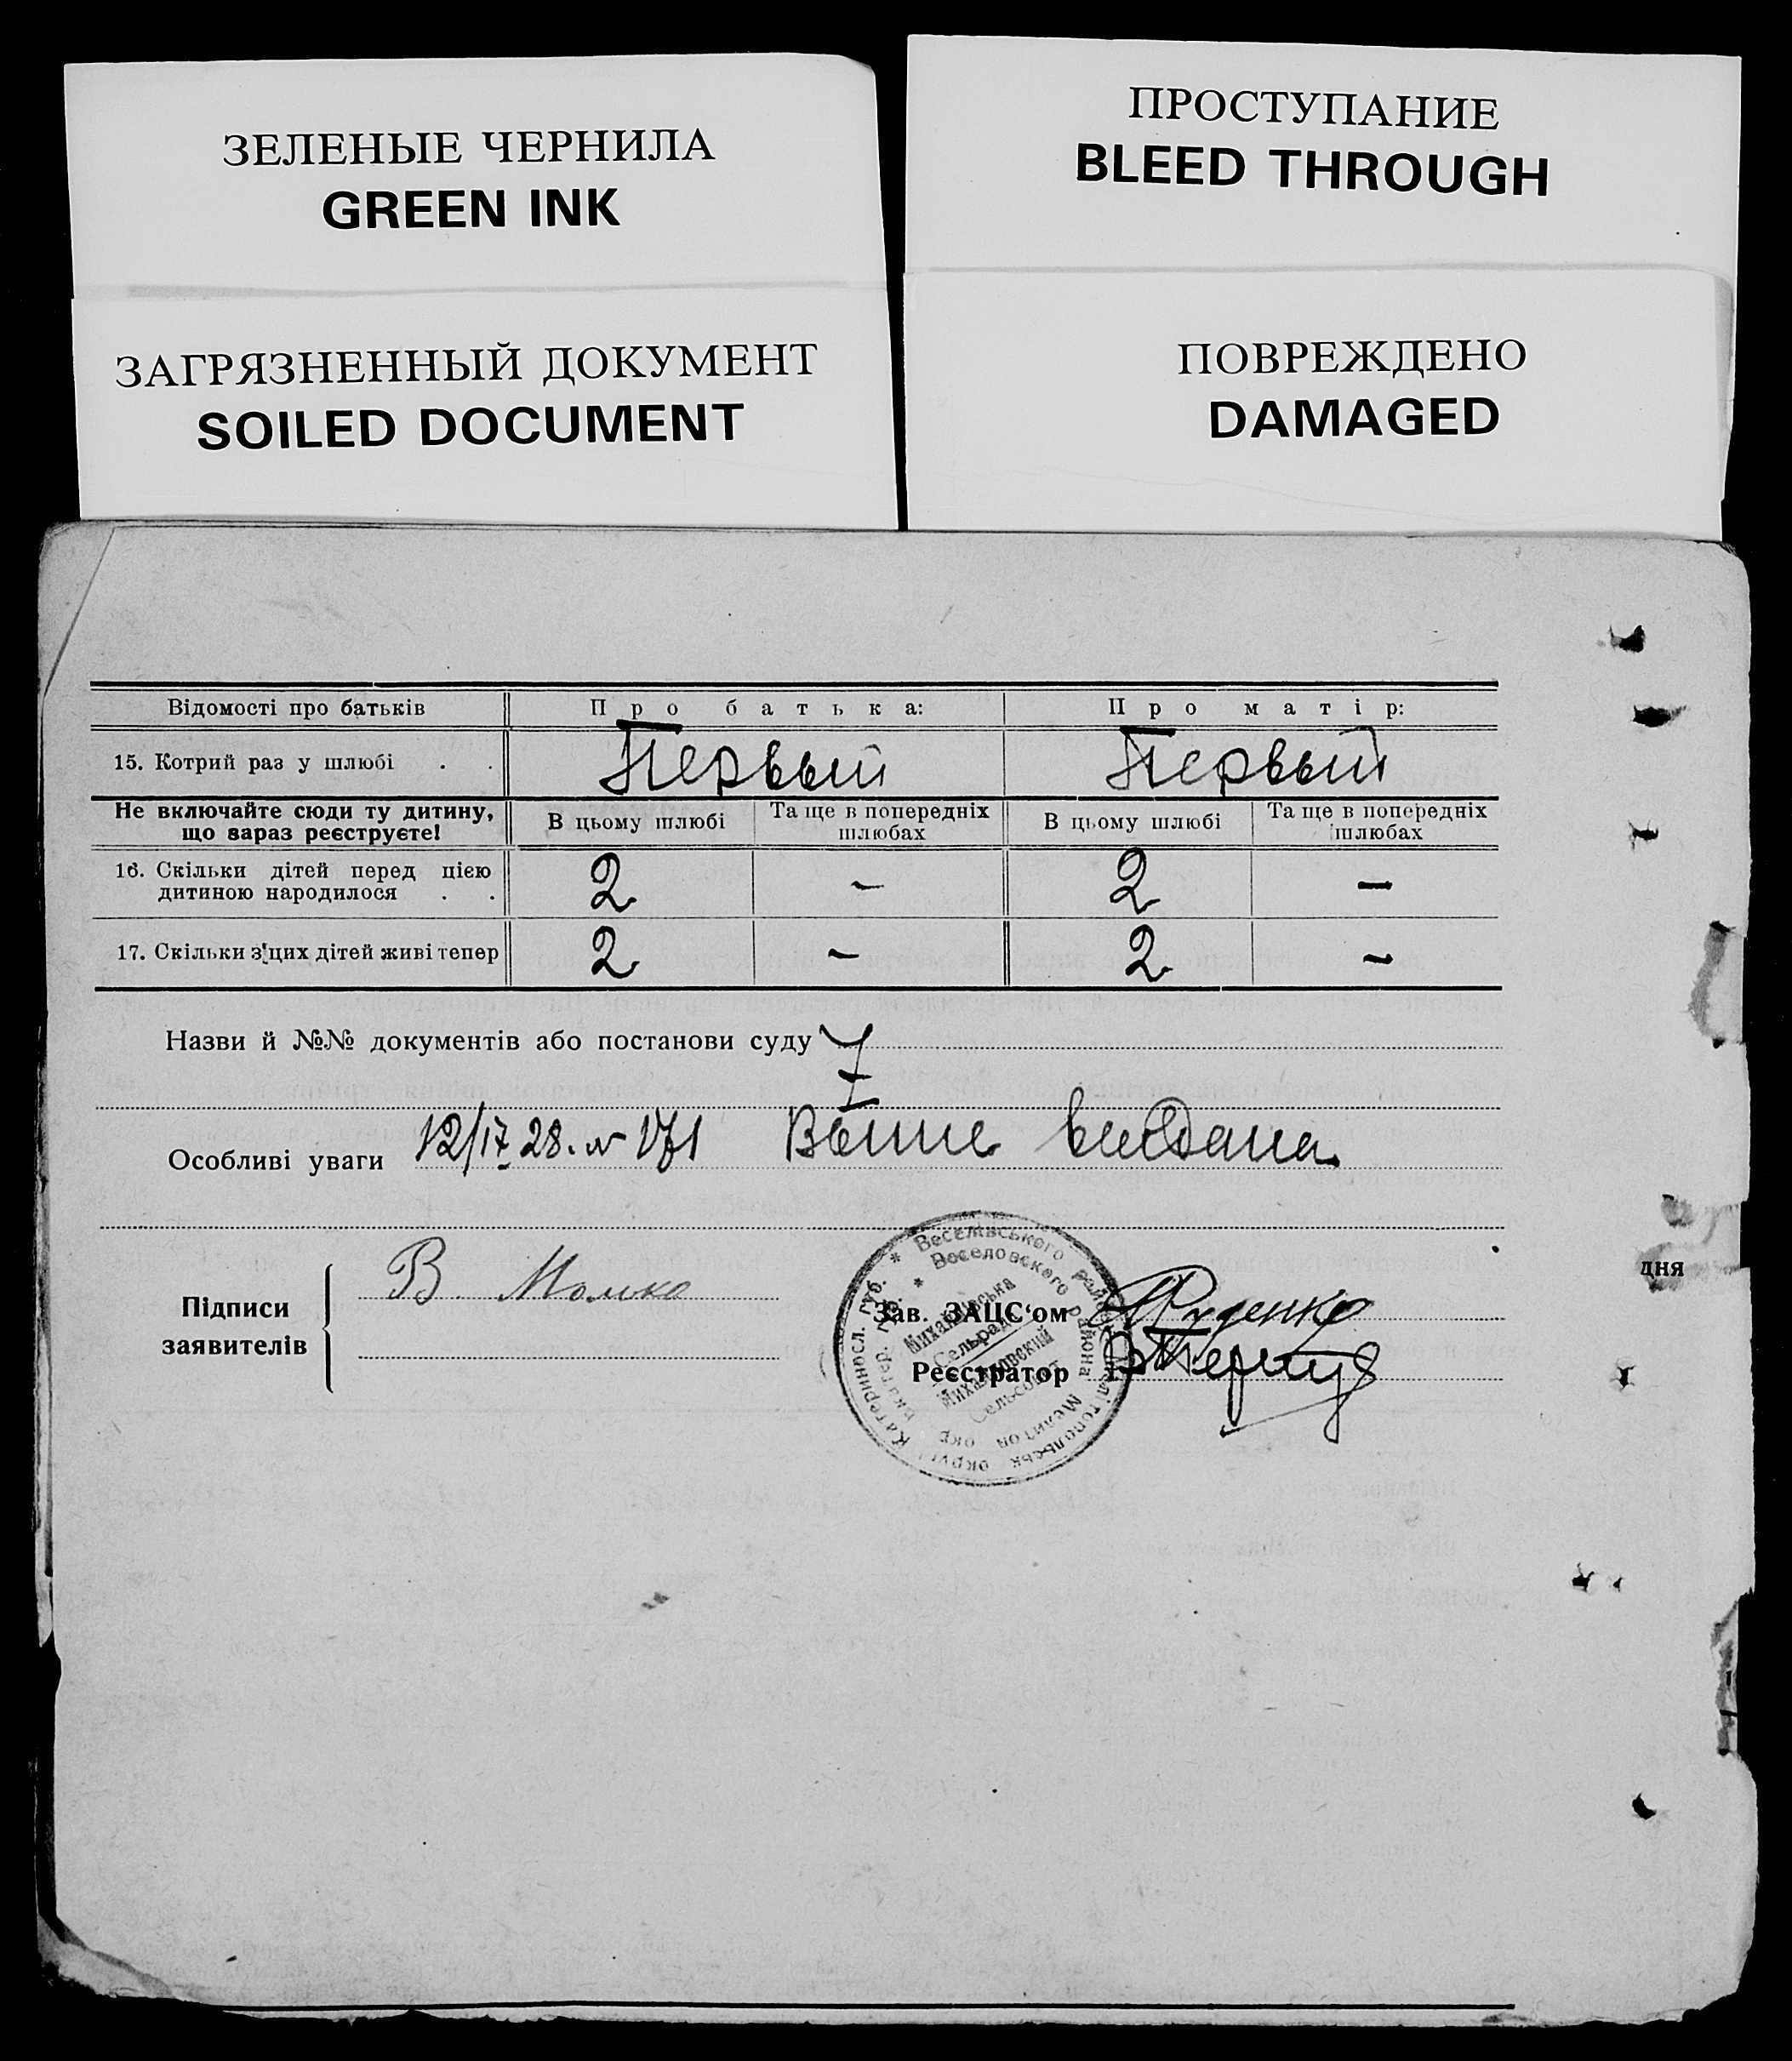 ЗЕЛЕНЫЕ ЧЕРНИЛА
GREEN INK
ПРОСТУПАНИЕ
BLEED THROUGH
ЗАГРЯЗНЕННЫЙ ДОКУМЕНТ
SOILED DOCUMENT
ПОВРЕЖДЕНО
DAMAGED
Відомості про батьків Про батька: Про матір:
15. Котрий раз у шлюбі . . Первый Первый
Не включайте сюди ту дитину,
що зараз реєструєте!
В цьому шлюбі
Та ще в попередніх
шлюбах
В цьому шлюбі
Та ще в попередніх
шлюбах
16. Скільки дітей перед цією
дитиною народилося . . 2 – 2 –
17. Скільки з цих дітей живі тепер 2 – 2 –
Назви й №№ документів або постанови суду
Особливі уваги 12/IV 28. № 171
Підписи
заявителів
В.
Зав. ЗАЦС'ом Руденко
Реєстратор
* Веселівського
* Веселовского района
Михайлівська
Сельрада
Михайловский
Сельсовет
Катериносл. губ.
округи
дня